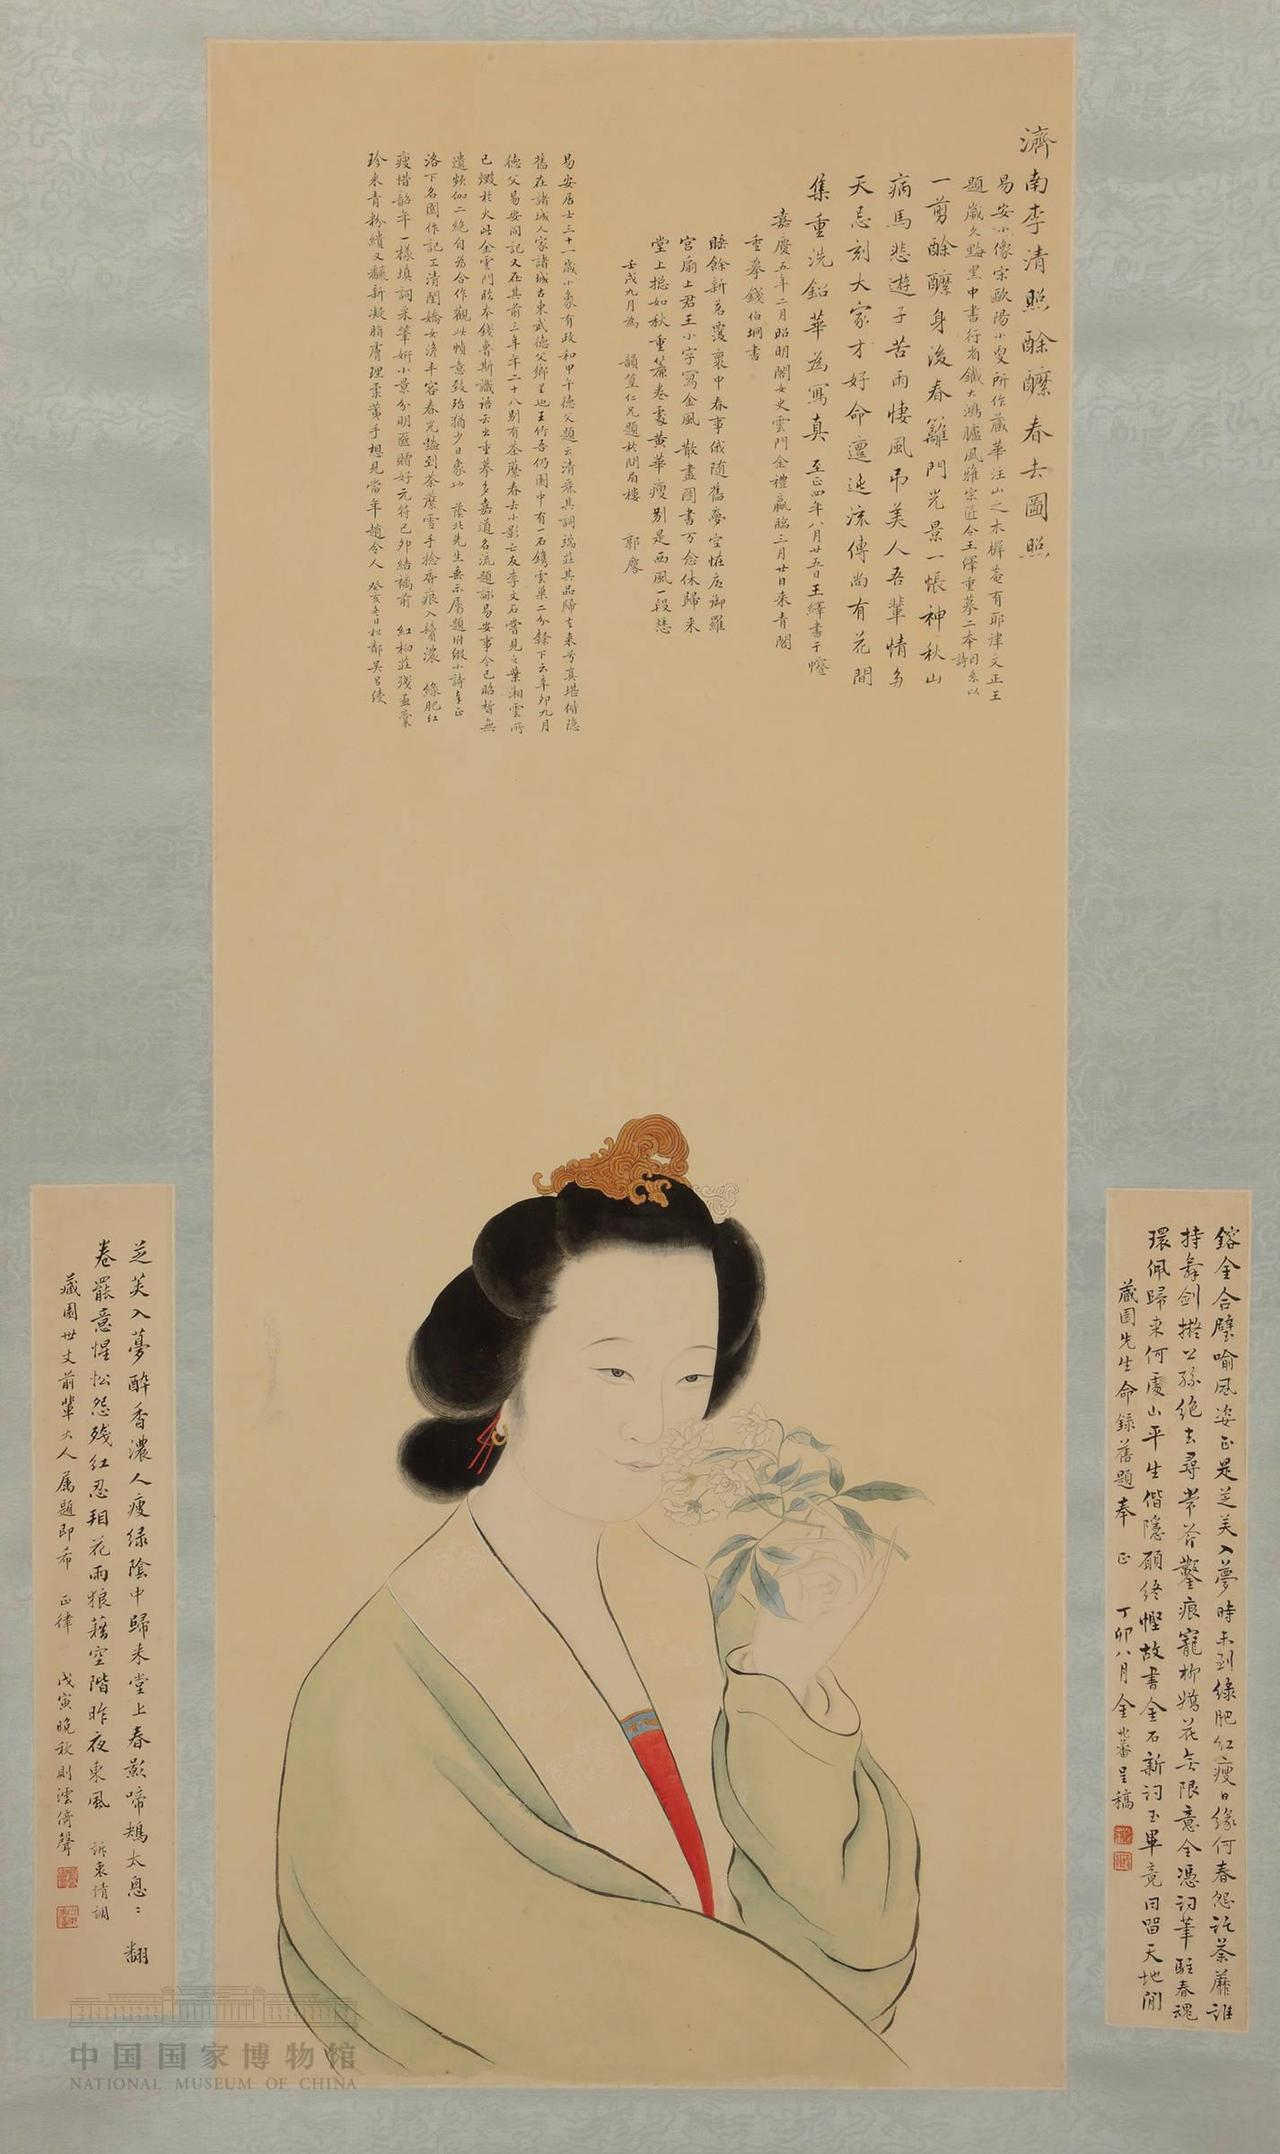 濟南李清照酴醾春去圖照
易安小像宗歐陽小叟所作藏華注山之木樨菴有耶律文正王
題歲久黝黑中書行省鐵大鴻臚風雅宗匠今王繹重摹二本同系以
詩
一剪酴醾身後春籬門光景一悵神秋山
病馬悲遊子苦雨悽風弔美人吾輩情多
天忌刻大家才好命邅迍流傳尚有花間
集重洗鉛華為寫真 至正四年八月廿五日王繹書于
嘉慶五年二月昭明閣女史雲門金禮嬴臨三月廿日來青閣
重摹錢伯坰書
睡餘新茗覆裹中春事俄隨舊夢空恠底御羅
宮扇上君王小字寫金風 散盡圖書万念休歸來
堂上揔如秋重簾卷處黃華瘦別是西風一段愁
壬戌九月為 韻篁仁兄題於問眉樓 郭麐
易安居士三十一歲小象有政和甲午德父題云清麗其詞端莊其品歸去來兮真堪偕隱
舊在諸城人家諸城古東武德父鄉里也王竹吾仍園中有一石鐫雲巢二分餘下云辛卯九月
德父易安同記又在其前三年年二十八別有荼蘼春去小影亡友李文石嘗見之葉湘雲所
已燬於火此金雲門臨本錢魯斯識語云出重摹多嘉道名流題詠易安事今已昭晳無
遺頻伽二絕自為合作觀此幀意致殆猶少日象也 蔭北先生垂示屬題附綴小詩奉正
洛下名園作記工清閨嬌女濟丰容春光豔到荼蘼雪手捻香痕入鬢濃 綠肥紅
瘦惜韶年一樣填詞采筆妍小景分明匲贈好元符己卯結褵前 紅栁莊殘孟藁
珍來青粉繢又翻新凝脂膚理柔荑手想見當年趙令人 癸亥冬日松鄰吴昌綬
鎔金合璧喻風姿正是芝芙入夢時未到綠肥紅瘦日緣何春怨託荼蘼誰
持舞劍擬公孫絕去尋常斧鑿痕寵柳嬌花無限意全憑詞筆駐春魂
環佩歸來何處山平生偕隱願終慳故書金石新詞玉畢竟同留天地閒
藏園先生命錄舊題奉 正 丁卯八月金兆蕃呈稿
芝芙入夢醉香濃人瘦綠陰中歸來堂上春影啼鴂太息匆匆 翻
卷罷意惺忪怨殘紅忍翔花雨狼藉空階昨夜東風 訴衷情調
藏園世丈前輩大人屬題即希 正律 戊寅晚秋則澐倚聲
中国国家博物馆
NATIONAL MUSEUM OF CHINA